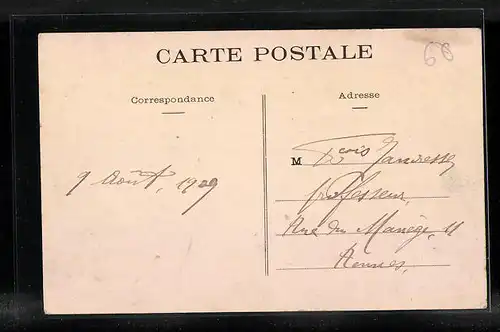 CARTE POSTALE
68
Correspondance
Adresse
9 Août, 1909
M Fçois
professeur,
Rue du Manège, 11
Rennes.